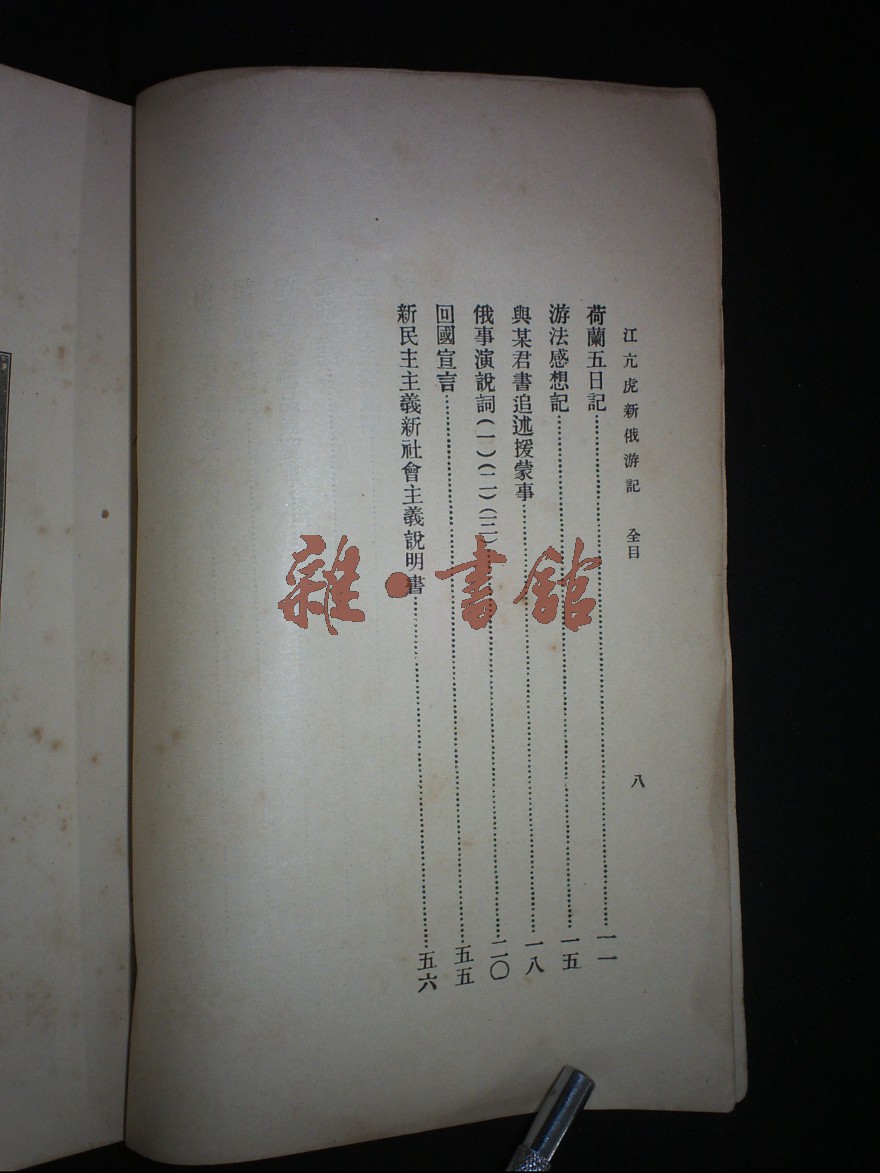 江亢虎新俄游記 全目 八
荷蘭五日記……一一
游法感想記……一五
與某君書追述援蒙事……一八
俄事演說詞(一)(二)(三)……二〇
回國宣言……五五
新民主主義新社會主義說明書……五六
雜·書館